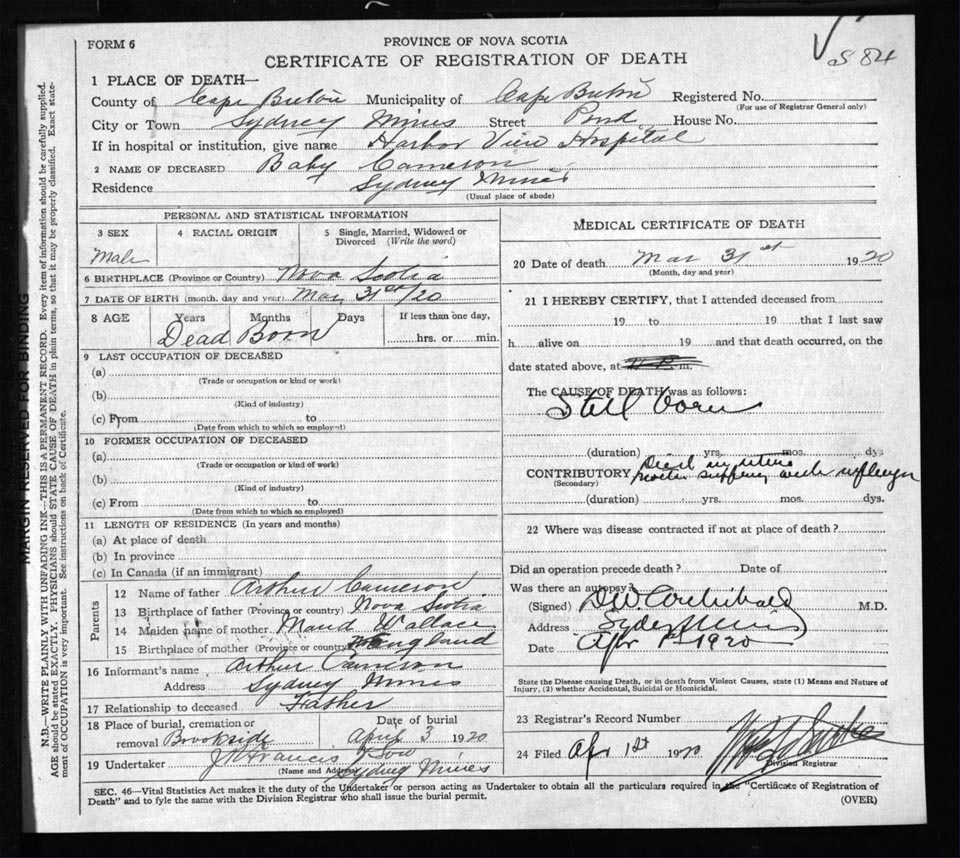 S 84
FORM 6
PROVINCE OF NOVA SCOTIA
CERTIFICATE OF REGISTRATION OF DEATH
1 PLACE OF DEATH—
County of Cape Breton Municipality of Cape Breton Registered No.
(For use of Registrar General only)
City or Town Sydney Mines Street Pond House No.
If in hospital or institution, give name Harbor View Hospital
2 NAME OF DECEASED Baby Cameron
Residence Sydney Mines
(Usual place of abode)
MARGIN RESERVED FOR BINDING
N.B.—WRITE PLAINLY WITH UNFADING INK—THIS IS A PERMANENT RECORD. Every item of information should be carefully supplied.
AGE should be stated EXACTLY. PHYSICIANS should STATE CAUSE OF DEATH in plain terms, so that it may be properly classified. Exact state-
ment of OCCUPATION is very important. See instructions on back of Certificate.
PERSONAL AND STATISTICAL INFORMATION
3 SEX 4 RACIAL ORIGIN 5 Single, Married, Widowed or
Divorced (Write the word)
Male
6 BIRTHPLACE (Province or Country) Nova Scotia
7 DATE OF BIRTH (month, day and year) Mar 31st/20
8 AGE Years Months Days If less than one day,
Dead Born hrs. or min.
9 LAST OCCUPATION OF DECEASED
(a)
(Trade or occupation or kind or work)
(b)
(Kind of industry)
(c) From to
(Date from which to which so employed)
10 FORMER OCCUPATION OF DECEASED
(a)
(Trade or occupation or kind of work)
(b)
(Kind of industry)
(c) From to
(Date from which to which so employed)
11 LENGTH OF RESIDENCE (In years and months)
(a) At place of death
(b) In province
(c) In Canada (if an immigrant)
Parents
12 Name of father Arthur Cameron
13 Birthplace of father (Province or country) Nova Scotia
14 Maiden name of mother Maud Wallace
15 Birthplace of mother (Province or country) England
16 Informant's name Arthur Cameron
Address Sydney Mines
17 Relationship to deceased Father
18 Place of burial, cremation or Date of burial
removal Brookside April 3 1920
19 Undertaker J A Francis & Son
(Name and Address) Sydney Mines
MEDICAL CERTIFICATE OF DEATH
20 Date of death Mar 31st 1920
(Month, day and year)
21 I HEREBY CERTIFY, that I attended deceased from
19 to 19 that I last saw
h alive on 19 and that death occurred, on the
date stated above, at m.
The CAUSE OF DEATH was as follows:
Still born
(duration) yrs. mos. dys
CONTRIBUTORY Died in utero
(Secondary) mother suffering with influenza
(duration) yrs. mos. dys.
22 Where was disease contracted if not at place of death?
Did an operation precede death? Date of
Was there an autopsy?
(Signed) D.W. Archibald M.D.
Address Sydney Mines
Date Apr 1st 1920
State the Disease causing Death, or in death from Violent Causes, state (1) Means and Nature of
Injury, (2) whether Accidental, Suicidal or Homicidal.
23 Registrar's Record Number
24 Filed Apr 1st 1920
Division Registrar
SEC. 46—Vital Statistics Act makes it the duty of the Undertaker or person acting as Undertaker to obtain all the particulars required in the "Certificate of Registration of
Death" and to fyle the same with the Division Registrar who shall issue the burial permit.
(OVER)